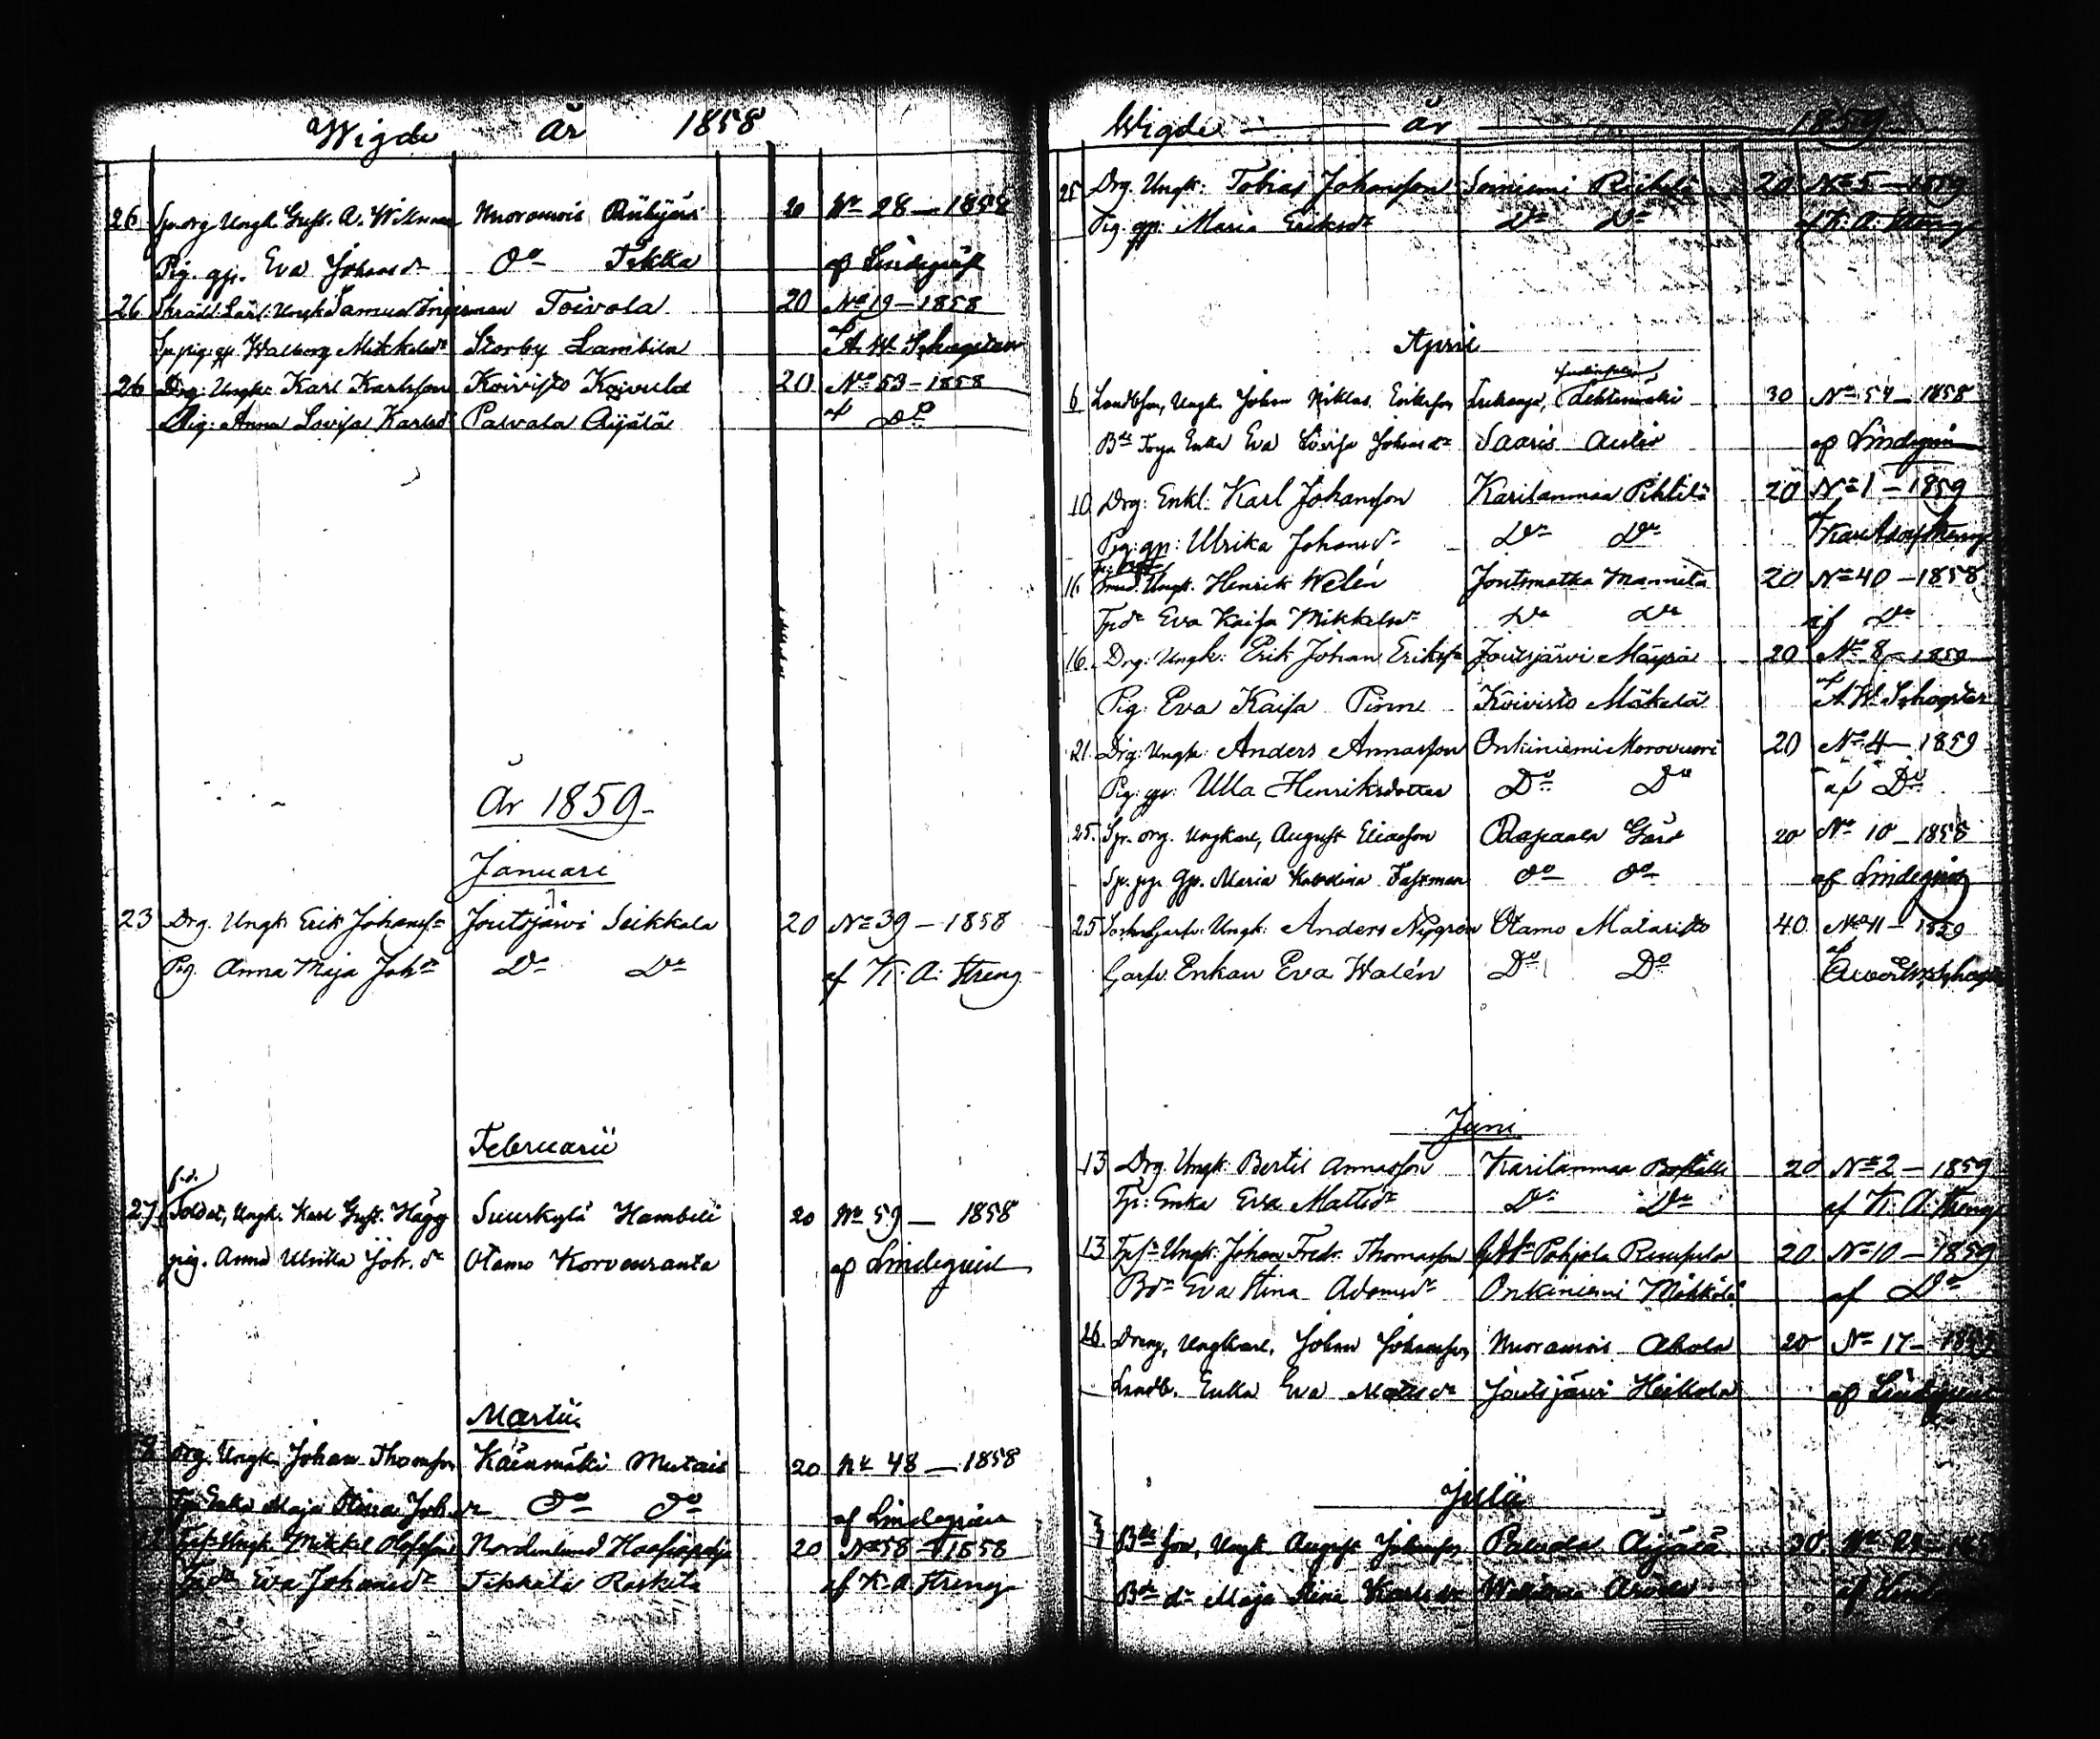 Wigde år 1858
26 Sp. drg Ungk. Gust. A. Wikman Nuoramois 20 No 28 — 1858
Pig. gp. Eva Johansdr Do Tekka af Lindequist
26. Skrädd. Lärl: Ungk Samuel Toivola 20 No 19 — 1858
Sp. pig. gp. Walborg Mikkelsdr Storby Lambila af A. W. Schogster
26 Drg: Ungk: Karl Karlsson Koivisto Koivula 20 No 53 – 1858
Pig: Anna Lovisa Karlsdr Palvala Äijälä af Do
År 1859
Januari
23 Drg. Ungk Erik Johanss: Joutsjärvi Seikkala 20 No 39 – 1858
Pig. Anna Maja Johdr Do Do af K. A. Streng
Februarii
f.d.
27 Soldat, Ungk. Karl Gust. Hägg Suurkylä Hambeli 20 No 59 — 1858
pig. Anna Ulrika Joh. dr Otamo Korvenranta af Lindequist
Martii
Drg. Ungk. Johan Thomsson Käenmäki Mutais 20 No 48 — 1858
Enka Maja Stina Joh. dr Do Do af Lindequist
Ungk Mikkel Olofsson Nordenlund 20 No 58 – 1858
Eva Johansdr Tikkala Raskila af K. A. Streng
Wigde år 1859
25 Drg. Ungk: Tobias Johansson Sarniemi 20 No 5 – 1859
Pig. gp: Maria Eriksdr Do Do af K. A. Streng
April
6 Landbson, Ungk. Johan Niklas Eriksson Lehtimäki 30 No 54 – 1858
Bde Torp Enka Eva Lovisa Johansdr Saaris Autio af Lindequist
10 Drg: Enkl. Karl Johansson Karilanmaa Pihtilä 20 No 1 – 1859
Pig: gp: Ulrika Johansdr Do Do af Karl Adolf Streng
16. Smed. Ungk. Henrik Welén Joutsmatka Mannila 20 No 40 – 1858
Tpdr Eva Kaisa Mikkelsdr Do Do af Do
16. Drg: Ungk: Erik Johan Erikss: Joutsjärvi Mäyrä 20 No 8 – 1859
Pig: Eva Kaisa Pinne Koivisto Mäkelä af A. W. Schogster
21. Drg: Ungk: Anders Annasson Onkiniemi Morovuori 20 No 4 – 1859
Pig: gp: Ulla Henriksdotter Do Do af Do
25. Sp. drg. Ungkarl, August Eliasson Rapaala Gård 20 No 10 – 1858
Sp. pig. gp. Maria Karolina Fastman Do Do af Lindequist
25 Ungk: Anders Nygrén Otamo Mataristo 40 No 11 – 1859
Garfv. Enkan Eva Walén Do Do af
Juni
13 Drg. Ungk: Bertil Annasson Karilanmaa Boställe 20 No 2 – 1859
Tp: Enka Eva Mattsdr Do Do af K. A. Streng
13 Tpsn Ungk: Johan Fredr. Thomasson Pohjola Ruupula 20 No 10 – 1859
Bdr Eva Stina Adamsdr Onkiniemi Mökkölä af Do
26. Dreng, Ungkarl, Johan Johansson Nuoramois Ahola 20 No 17 –
Landb. Enka Eva Mattsdr Joutsjärvi Heikkola af Lindequist
Julii
Bde son, Ungk. August Johansson Palvala Äijälä 20
Bde dr Maja Stina Karlsdr af